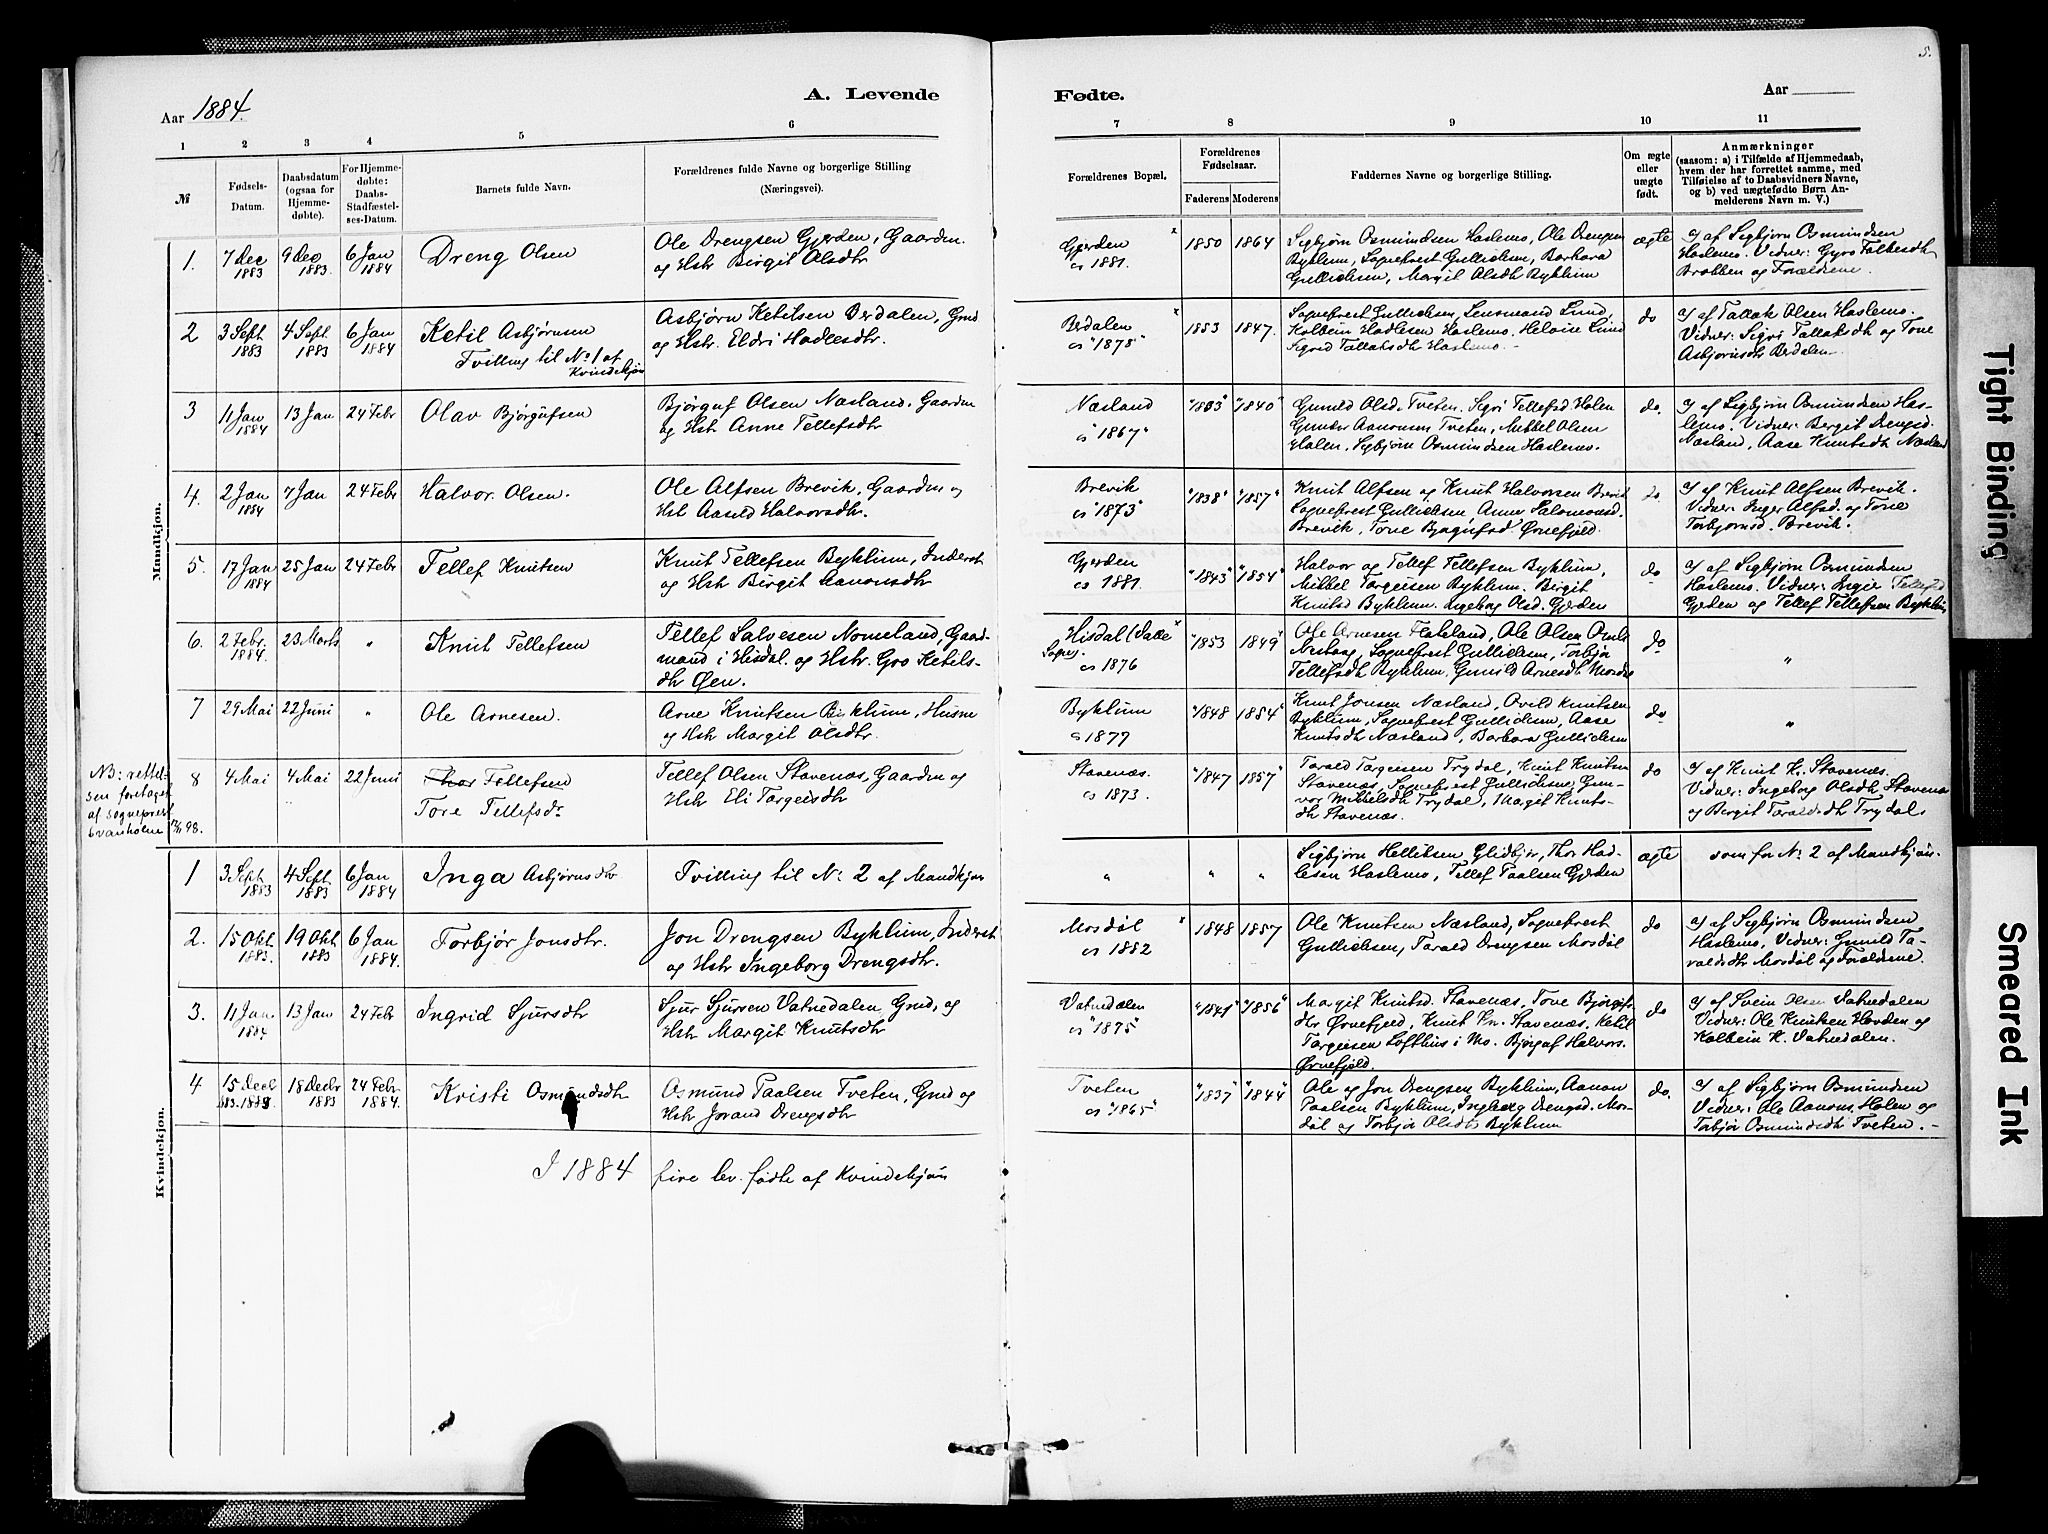 5.
Aar 1884.
A. Levende
Fødte.
Aar
1 2 3 4 5 6 7 8 9 10 11
№
Fødsels-
Datum.
Daabsdatum
(ogsaa for
Hjemme-
døbte).
For Hjemme-
døbte:
Daabs-
Stadfæstel-
ses-Datum.
Barnets fulde Navn.
Forældrenes fulde Navne og borgerlige Stilling
(Næringsvei).
Forældrenes Bopæl.
Forældrenes
Fødselsaar.
Faderens Moderens
Faddernes Navne og borgerlige Stilling.
Om ægte
eller
uægte
født.
Anmærkninger
(saasom: a) i Tilfælde af Hjemmedaab,
hvem der har forrettet samme, med
Tilføielse af to Daabsvidners Navne,
og b) ved uægtefødte Børn An-
melderens Navn m. V.)
Mandkjøn.
1. 7 Dec 1883 9 Dec 1883. 6 Jan 1884
Dreng Olsen
Ole Drengsen Gjerden, Gaardm.
og Hstr Birgit Olsdtr
Gjerden x
1881.
1850 1864
Sigbjørn Osmundsen Haslemo, Ole Drengsen
Byklum, Sogneprest Gullichsen, Barbara
Gullichsen, Margit Olsdtr Byklum
ægte
a/ af Sigbjørn Osmundsen
Haslemo. Vidner: Gyro
Brokken og Forældrene.
2 3 Sept 1883 4 Sept 1883 6 Jan 1884
Ketil Asbjørnsen
Tvilling til No 1 af
Kvindekjøn
Asbjørn Ketilsen Berdalen, Gmd
og Hstr. Eldri Hadlesdtr.
Berdalen x
"1878"
1853 1847.
Sogneprest Gullichsen, Lensmand Lund,
Kolbein Hadlesen Haslemo, Heloise Lund
Sigrid Tallaksdtr Haslemo. -
do
a/ af Tallak Olsen Haslemo.
Vidner: Sigri Tallaksdtr og Tone
Asbjørnsdtr Berdalen.
3 11 Jan 1884 13 Jan 24 Febr
Olav Bjørgufsen
Bjørguf Olsen Næsland. Gaardm
og Hstr Anne Tellefsdtr
Næsland
"1867"
"1840"
Gunild Olsd. Tveten. Sigri Tellefsd Holen
Gunder Aanonsen Tveten, Mikkel Olsen
Holen, Sigbjørn Osmundsen Haslemo.
do.
a/ af Sigbjørn Osmundsen Has-
lemo. Vidner: Bergit Drengsd.
Næsland, Aase Knutsdtr Næsland
4. 2 Jan 1884 7 Jan 24 Febr
Halvor Olsen.
Ole Alfsen Brevik, Gaardm og
Hstr Aasild Halvorsdtr.
Brevik
"1873"
"1838" "1857"
Knut Alfsen og Knut Halvorsen Brevik
Sogneprest Gullichsen Anne Salomonsd.
Brevik, Tone Bjørgufsd Ørnefjeld.
do.
a/ af Knut Alfsen Brevik.
Vidner: Inger Alfsd. og Tone
Torbjørnsd. Brevik.
5. 17 Jan 1884 25 Jan 24 Febr
Tellef Knutsen
Knut Tellefsen Byklum, Inderst
og Hstr Birgit Aanonsdtr
Gjerden
1881.
"1843" "1854"
Halvor og Tellef Tellefsen Byklum,
Mikkel Targeisen Byklum. Birgit
Knutsd Byklum. Ingebog Olsd. Gjerden
do
a/ af Sigbjørn Osmundsen
Haslemo. Vidner: Tellefsd
Gjerden og Tellef Tellefsen Byklum
6. 2 Febr. 1884. 23 Marts "
Knut Tellefsen
Tellef Salvesen Nomeland, Gaard-
mand i Hisdal. og Hstr. Gro Ketils-
dtr Øen.
Hisdal (Valle x
Sogn).
1876
"1853 1849"
Ole Arnesen Flateland, Ole Olsen
Sogneprest Gullichsen, Torbjør
Tellefsdtr Byklum, Gunild Arnesdtr
do
"
7 29 Mai 22 Juni "
Ole Arnesen.
Arne Knutsen Byklum, Husm
og Hstr Margit Olsdtr.
Byklum
1877
"1848 1854"
Knut Jonsen Næsland, Knutsen
Byklum, Sogneprest Gullichsen, Aase
Knutsdtr Næsland, Barbara Gullichsen
do
"
NB: rettel-
sen foretaget
af sogneprest
Svanholm 98.
8 4 Mai 4 Mai 22 Juni
Thor Tellefsen
Tore Tellefsdr
Tellef Olsen Stavenæs, Gaardm og
Hstr Eli Targeisdtr
Stavenæs.
1873.
"1847 1857"
Tarald Targeisen Trydal, Knut Knutsen
Stavenæs, Sogneprest Gullichsen, Gun-
vor Mikkelsdtr Trydal, Margit Knuts-
dtr Stavenæs.
do
a/ af Knut K. Stavenæs.
Vidner: Ingebog Olsdtr Stavenæs
og Bergit Taraldsdtr Trydal.
Kvindekjøn.
1 3 Sept 1883 4 Sept 1883 6 Jan 1884
Inga Asbjørnsdtr
Tvilling til No 2 af Mandkjøn
" " "
Sigbjørn Hellicksen Glidbjør, Thor Had-
lesen Haslemo, Tellef Paalsen Gjerden
ægte
som for No 2 af Mandkjøn.
2. 15 Okt. 1883. 19 Okt 1883 6 Jan 1884.
Torbjør Jonsdtr.
Jon Drengsen Byklum, Inderst
og Hstr Ingeborg Drengsdtr.
Mosdøl x
1882
1848 1857
Ole Knutsen Næsland, Sogneprest
Gullichsen, Tarald Drengsen Mosdøl
do
a/ af Sigbjørn Osmundsen
Haslemo, Vidner: Gunild Ta-
raldsdtr Mosdøl og Forældrene.
3. 11 Jan 1884. 13 Jan 24 Febr
Ingrid Sjursdtr
Sjur Sjursen Vatnedalen, Gmd, og
Hstr Margit Knutsdtr
Vatnedalen
"1875"
"1841" "1856"
Margit Knutsd. Stavenæs, Tove Bjørgufs-
dtr Ørnefjeld, Knut Kn. Stavenæs, Ketil
Targeisen Lofthus i Mo. Bjørguf Halvors.
Ørnefjeld.
do
a/ af Svein Olsen Vatnedalen
Vidner: Ole Knutsen Hovden og
Kolbein K. Vatnedalen.
4 15 Decb 1883. 18 Decbr 1883 24 Febr. 1884.
Kristi Osmundsdtr
Osmund Paalsen Tveten, Gmd og
Hstr Jorand Drengsdtr
Tveten
"1865"
"1837" "1844"
Ole og Jon Drengsen Byklum, Aanon
Paalsen Byklum, Ingeborg Drengsd. Mos-
døl og Torbjør Olsdtr Byklum
do.
a/ af Sigbjørn Osmundsen
Vidner: Ole Aanons. Holen og
Torbjør Osmundsdtr Tveten. -
I 1884 fire lev. fødte af Kvindekjøn
Tight Binding
Smeared Ink